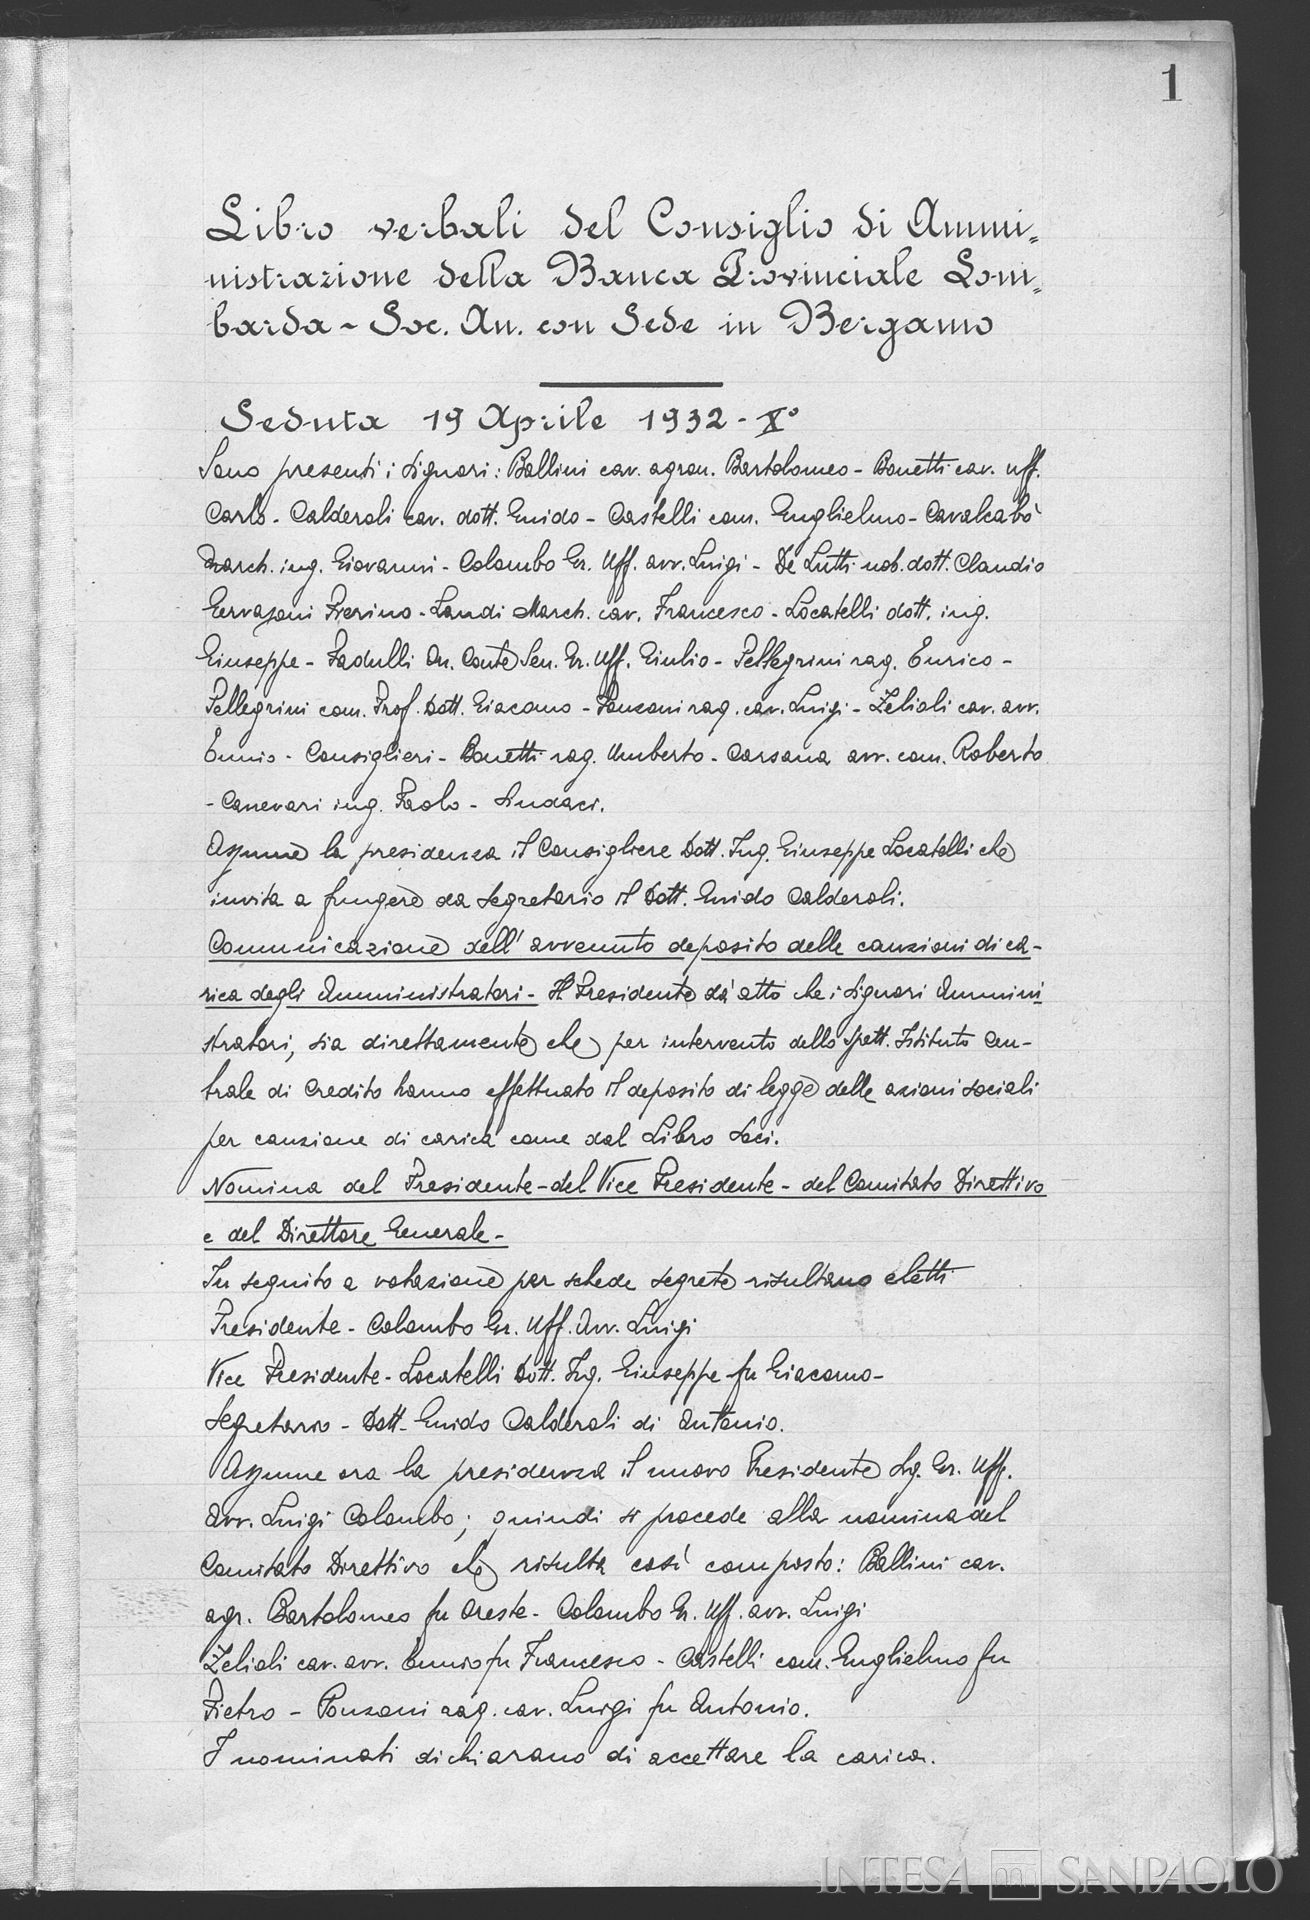 1
Libro verbali del Consiglio di Ammi-
nistrazione della Banca Provinciale Lom-
barda - Soc. An. con Sede in Bergamo
Seduta 19 Aprile 1932 - X°
Sono presenti i Signori: Ballini cav. agron. Bartolomeo - Bonetti cav. uff.
Carlo - Calderoli cav. dott. Guido - Castelli com. Guglielmo - Cavalcabò
March. ing. Giovanni - Colombo Gr. Uff. avv. Luigi - De Lutti nob. dott. Claudio
Gervasoni Pierino - Landi March. cav. Francesco - Locatelli dott. ing.
Giuseppe - Padulli On. Conte Sen. Gr. Uff. Giulio - Pellegrini rag. Enrico -
Pellegrini com. Prof. Dott. Giacomo - Ponzoni rag. cav. Luigi - Zelioli cav. avv.
Ennio - Consiglieri - Bonetti rag. Umberto - Carsana avv. com. Roberto
- Canevari ing. Paolo - Sindaci.
Assume la presidenza il Consigliere Dott. Ing. Giuseppe Locatelli che
invita a fungere da segretario il Dott. Guido Calderoli.
Comunicazione dell' avvenuto deposito delle cauzioni di ca-
rica degli Amministratori - Il Presidente dà atto che i Signori Ammini
stratori, sia direttamente che per intervento dello Spett. Istituto Cen-
trale di Credito hanno effettuato il deposito di legge delle azioni sociali
per cauzione di carica come dal Libro Soci.
Nomina del Presidente - del Vice Presidente - del Comitato Direttivo
e del Direttore Generale -
In seguito a votazione per schede segrete risultano eletti
Presidente - Colombo Gr. Uff. Avv. Luigi
Vice Presidente - Locatelli Dott. Ing. Giuseppe fu Giacomo -
Segretario - Dott. Guido Calderoli di Antonio.
Assume ora la presidenza il nuovo Presidente Sig. Gr. Uff.
Avv. Luigi Colombo; quindi si procede alla nomina del
Comitato Direttivo che risulta così composto: Ballini cav.
agr. Bartolomeo fu Oreste - Colombo Gr. Uff. avv. Luigi
Zelioli cav. avv. Ennio fu Francesco - Castelli com. Guglielmo fu
Pietro - Ponzoni rag. cav. Luigi fu Antonio.
I nominati dichiarano di accettare la carica.
INTESA SANPAOLO